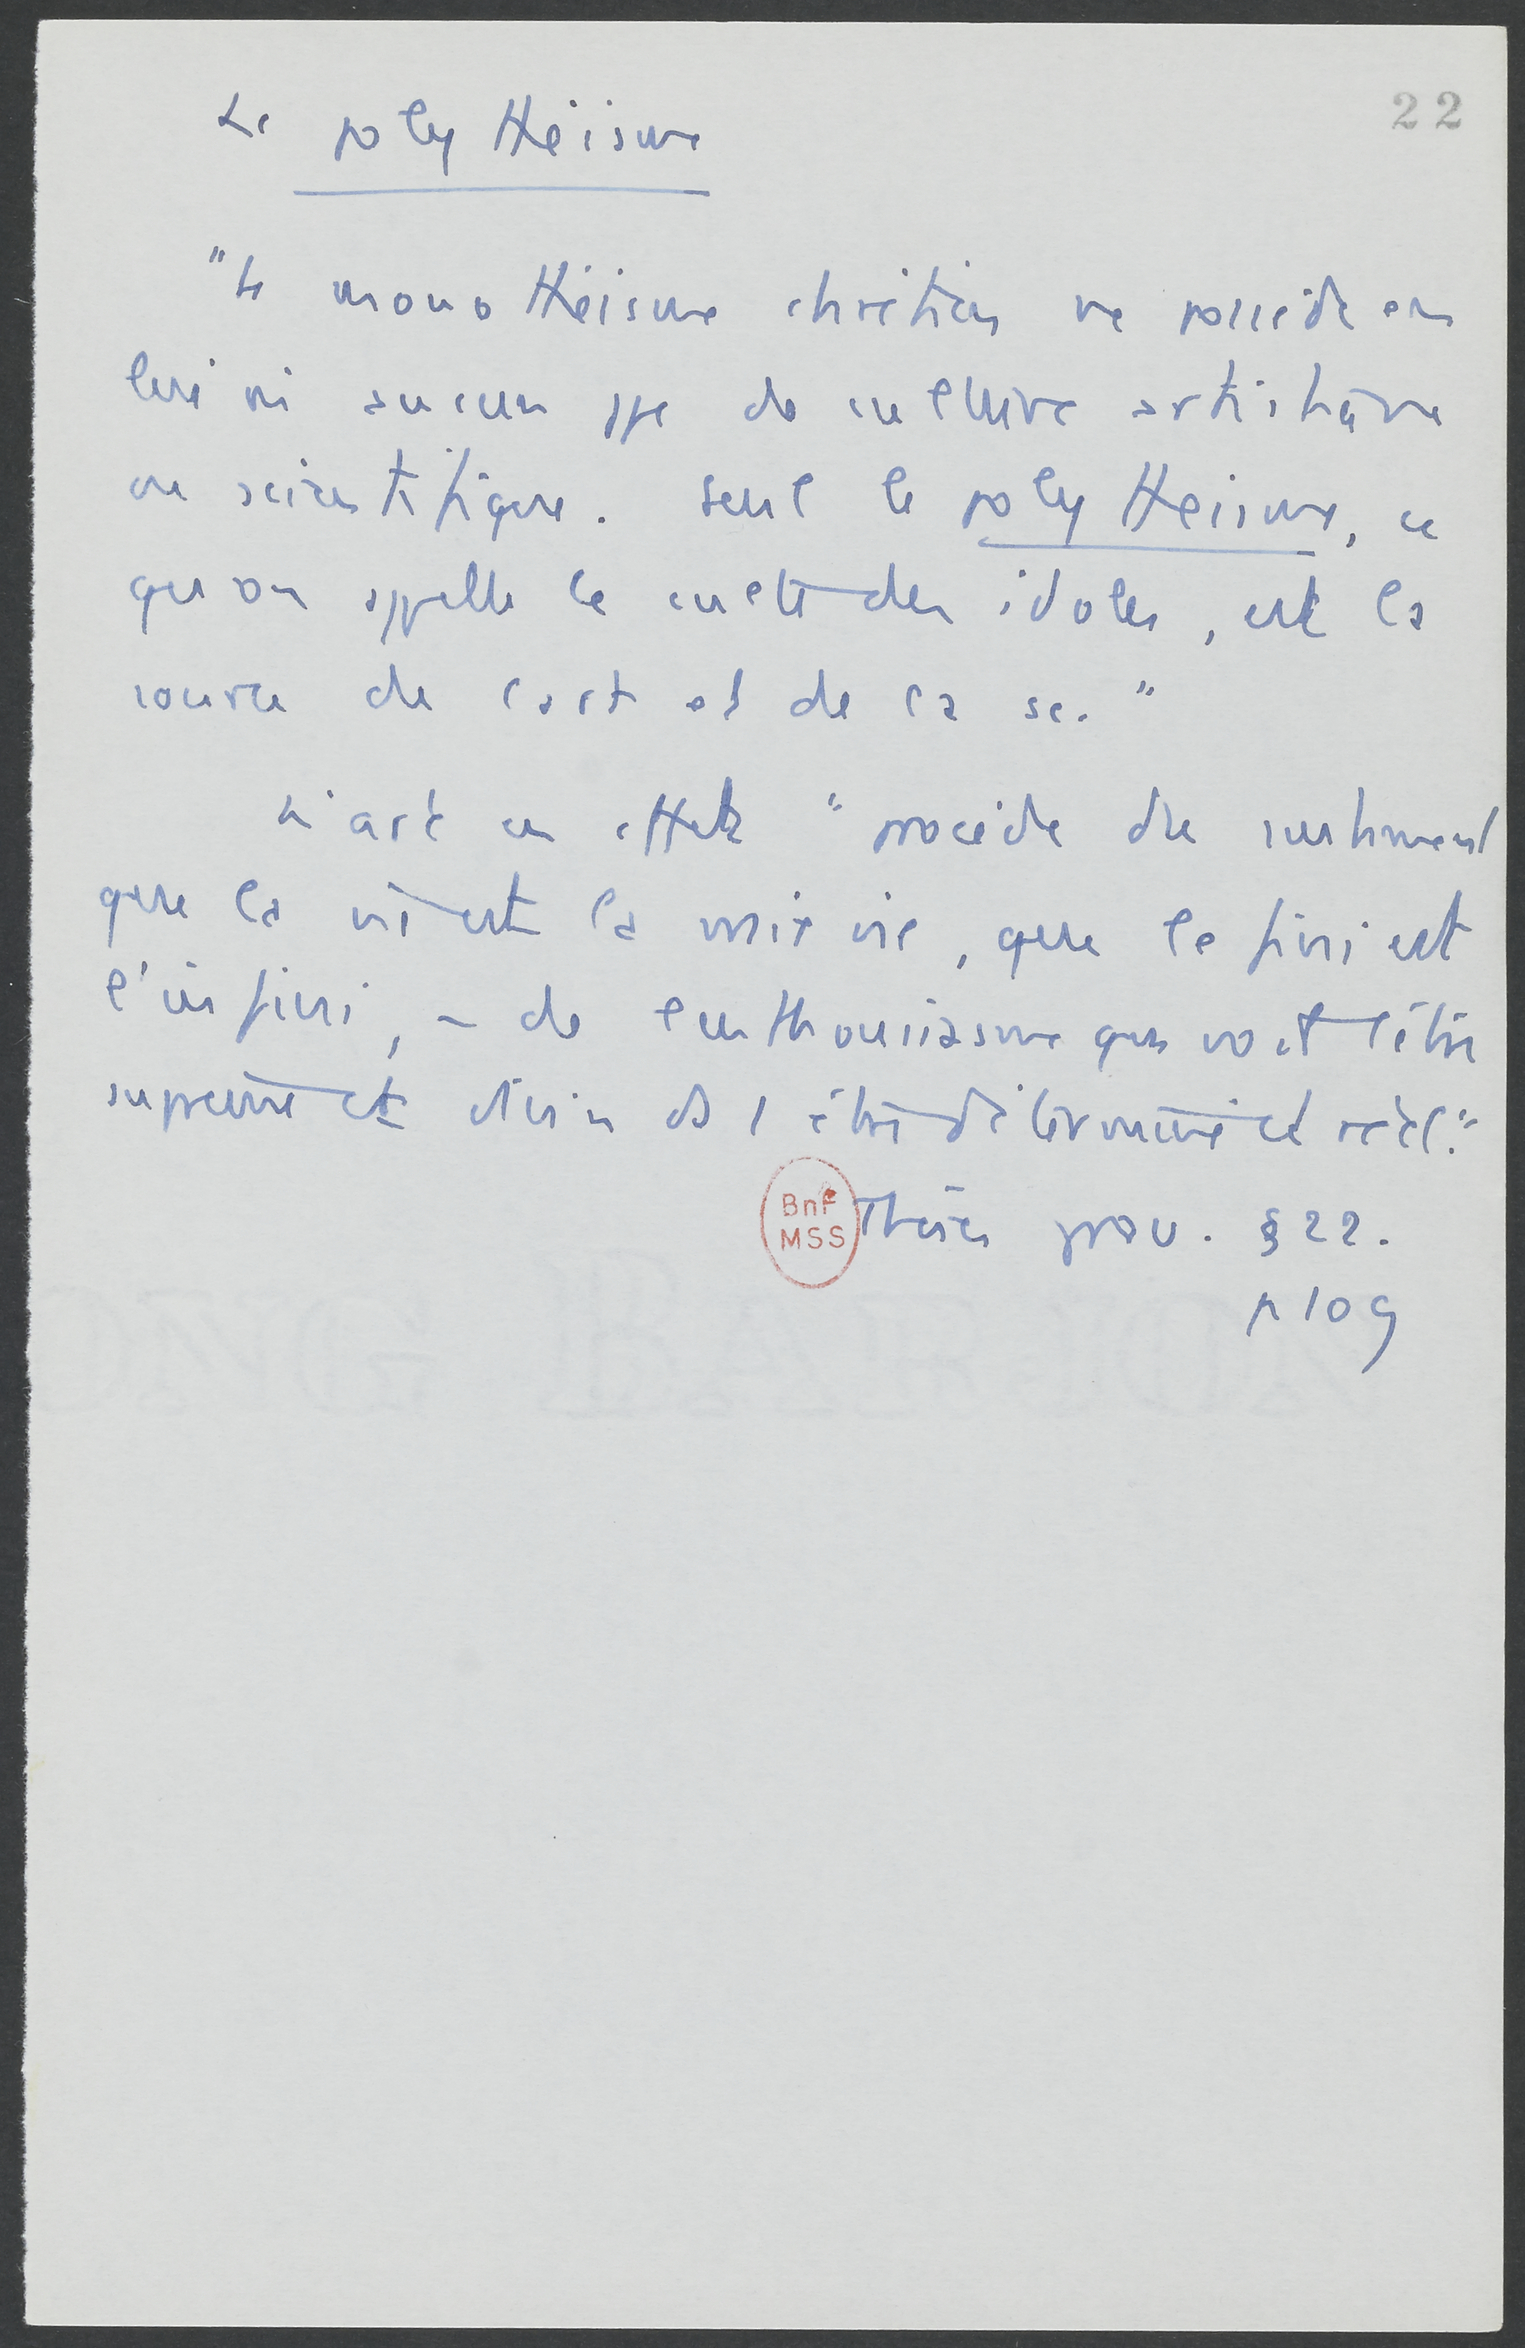 22
Le polythéisme
"Le monothéisme chrétien ne possède en
lui ni aucun ppe de culture artistique
ou scientifique. Seul le polythéisme, ce
qu'on appelle le culte des idoles, est la
source de l'art et de la sc."
L'art en effet "procède du sentiment
que la vie est la vraie vie, que le fini est
l'infini, – de l'enthousiasme qui voit l'être
suprême et divin ds l'être déterminé et réel."
BnF
MSS
Thèses prov. §22.
p 109